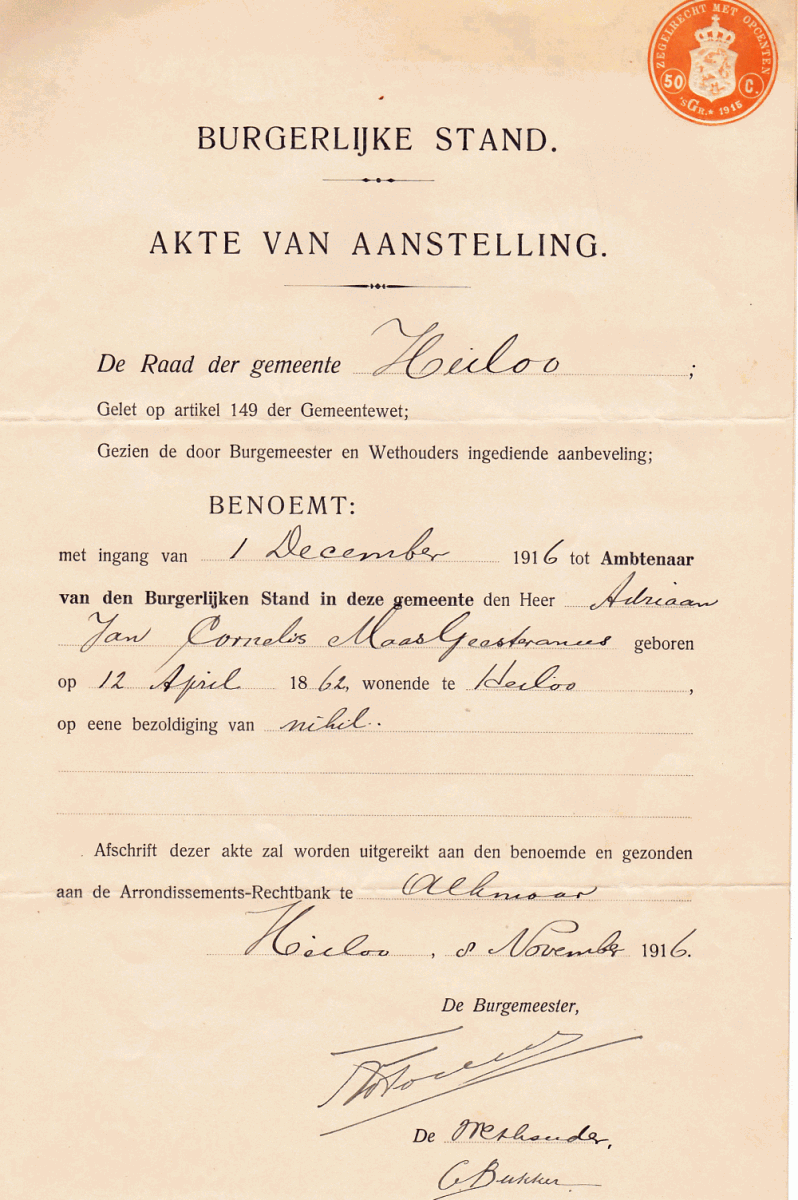 ZEGELRECHT MET OPCENTEN
50 C.
'sGR.* 1915
BURGERLIJKE STAND.
AKTE VAN AANSTELLING.
De Raad der gemeente Heiloo ;
Gelet op artikel 149 der Gemeentewet;
Gezien de door Burgemeester en Wethouders ingediende aanbeveling;
BENOEMT:
met ingang van 1 December 1916 tot Ambtenaar
van den Burgerlijken Stand in deze gemeente den Heer Adriaan
Jan Cornelis Maas Geesteranus geboren
op 12 April 1862, wonende te Heiloo ,
op eene bezoldiging van nihil.
Afschrift dezer akte zal worden uitgereikt aan den benoemde en gezonden
aan de Arrondissements-Rechtbank te Alkmaar
Heiloo , 8 November 1916.
De Burgemeester,
De Wethouder,
C Bukker